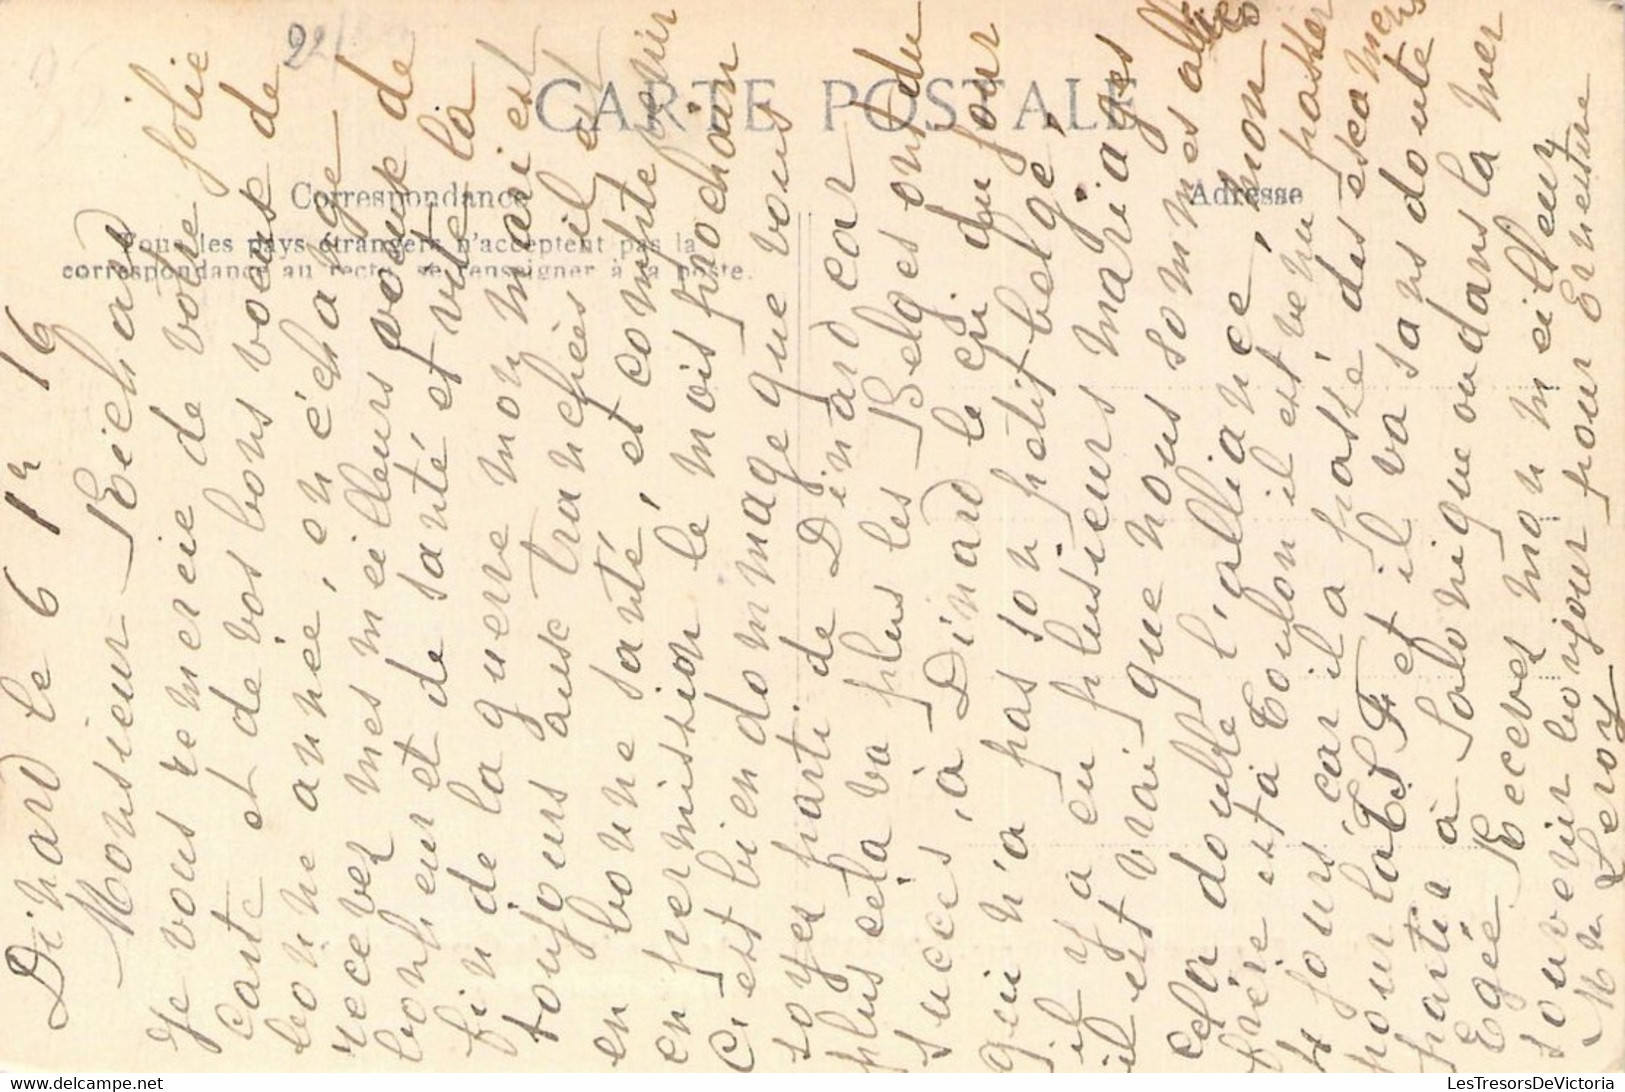 CARTE POSTALE
Correspondance
Adresse
Tous les pays étrangers n'acceptent pas la
correspondance au recto, se renseigner à la poste.
Dinard le 6 1r 16
Monsieur Richard
Je vous remercie de votre jolie
carte et de vos bons voeux de
bonne année, en échange
recevez mes meilleurs voeux de
bonheur et de santé et vite la
fin de la guerre mon mari est
toujours aux tranchées il est
en bonne santé, et compte venir
en permission le mois prochain
C'est bien dommage que vous
soyez parti de Dinard car
plus cela va plus les Belges ont du
succès, à Dinard le qui du jour
qui n'a pas son petit belge,
il y a eu plusieurs mariages
il est vrai que nous sommes alliés
cela double l'alliance, mon
frère est à Toulon il est venu passer
4 jours, car il a passé des examens
pour la T.S.F et il va sans doute
partir à Salonique ou dans la mer
Egée Recevez mon meilleur
souvenir bonjour pour Ernestine
Mn Leroy
LesTresorsDeVictoria